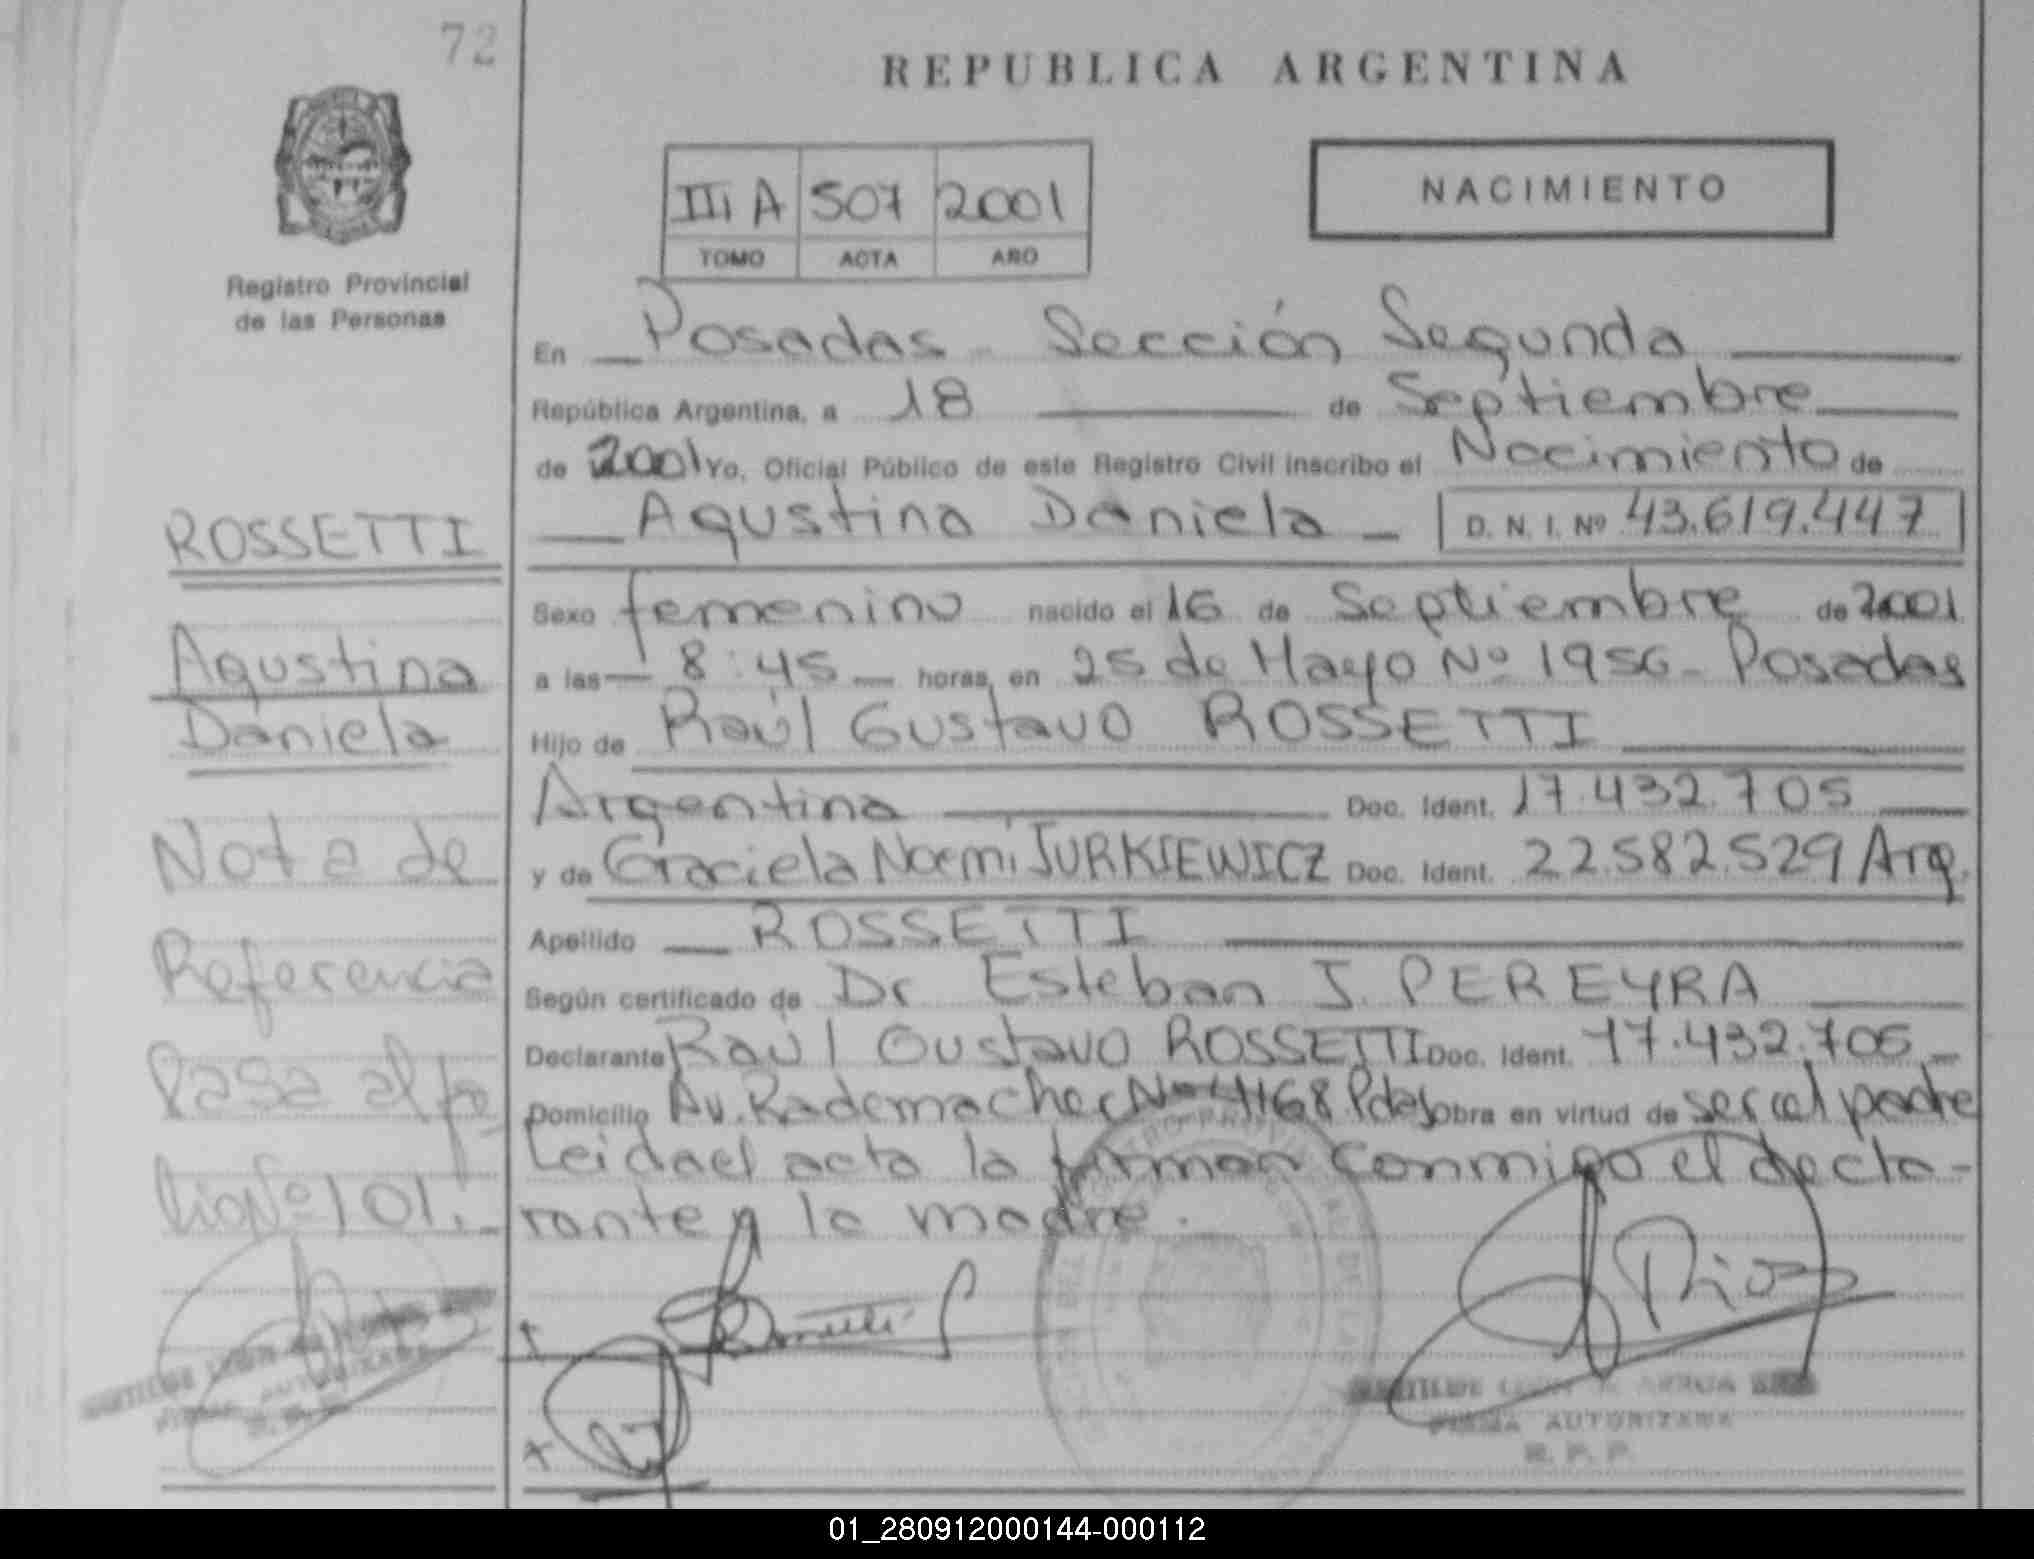 72
REPUBLICA ARGENTINA
NACIMIENTO
III A 507 2001
TOMO ACTA AÑO
Registro Provincial
de las Personas
En Posadas - Sección Segunda
República Argentina, a 18 de Septiembre
de 2001 Yo, Oficial Público de este Registro Civil inscribo el Nacimiento de
Agustina Daniela D. N. I. Nº 43.619.447
ROSSETTI
Agustina
Daniela
Nota de
Referencia
Pasa al fo
lio Nº 101.-
Sexo femenino nacido el 16 de Septiembre de 2001
a las 8:45 horas, en 25 de Mayo Nº 1956 - Posadas
Hijo de Raúl Gustavo ROSSETTI
Argentina Doc. Ident. 17.432.705
y de Graciela Noemi JURKIEWICZ Doc. Ident. 22.582.529 Arg.
Apellido ROSSETTI
Según certificado de Dr Esteban J. PEREYRA
Declarante Raúl Gustavo ROSSETTI Doc. Ident. 17.432.705
Domicilio Av. Rademacher Nº 4168 Pdas Obra en virtud de ser el padre
Leida el acta la firman conmigo el decla-
rante y la madre.
Rios
FIRMA AUTORIZADA
R. P. P.
01_280912000144-000112